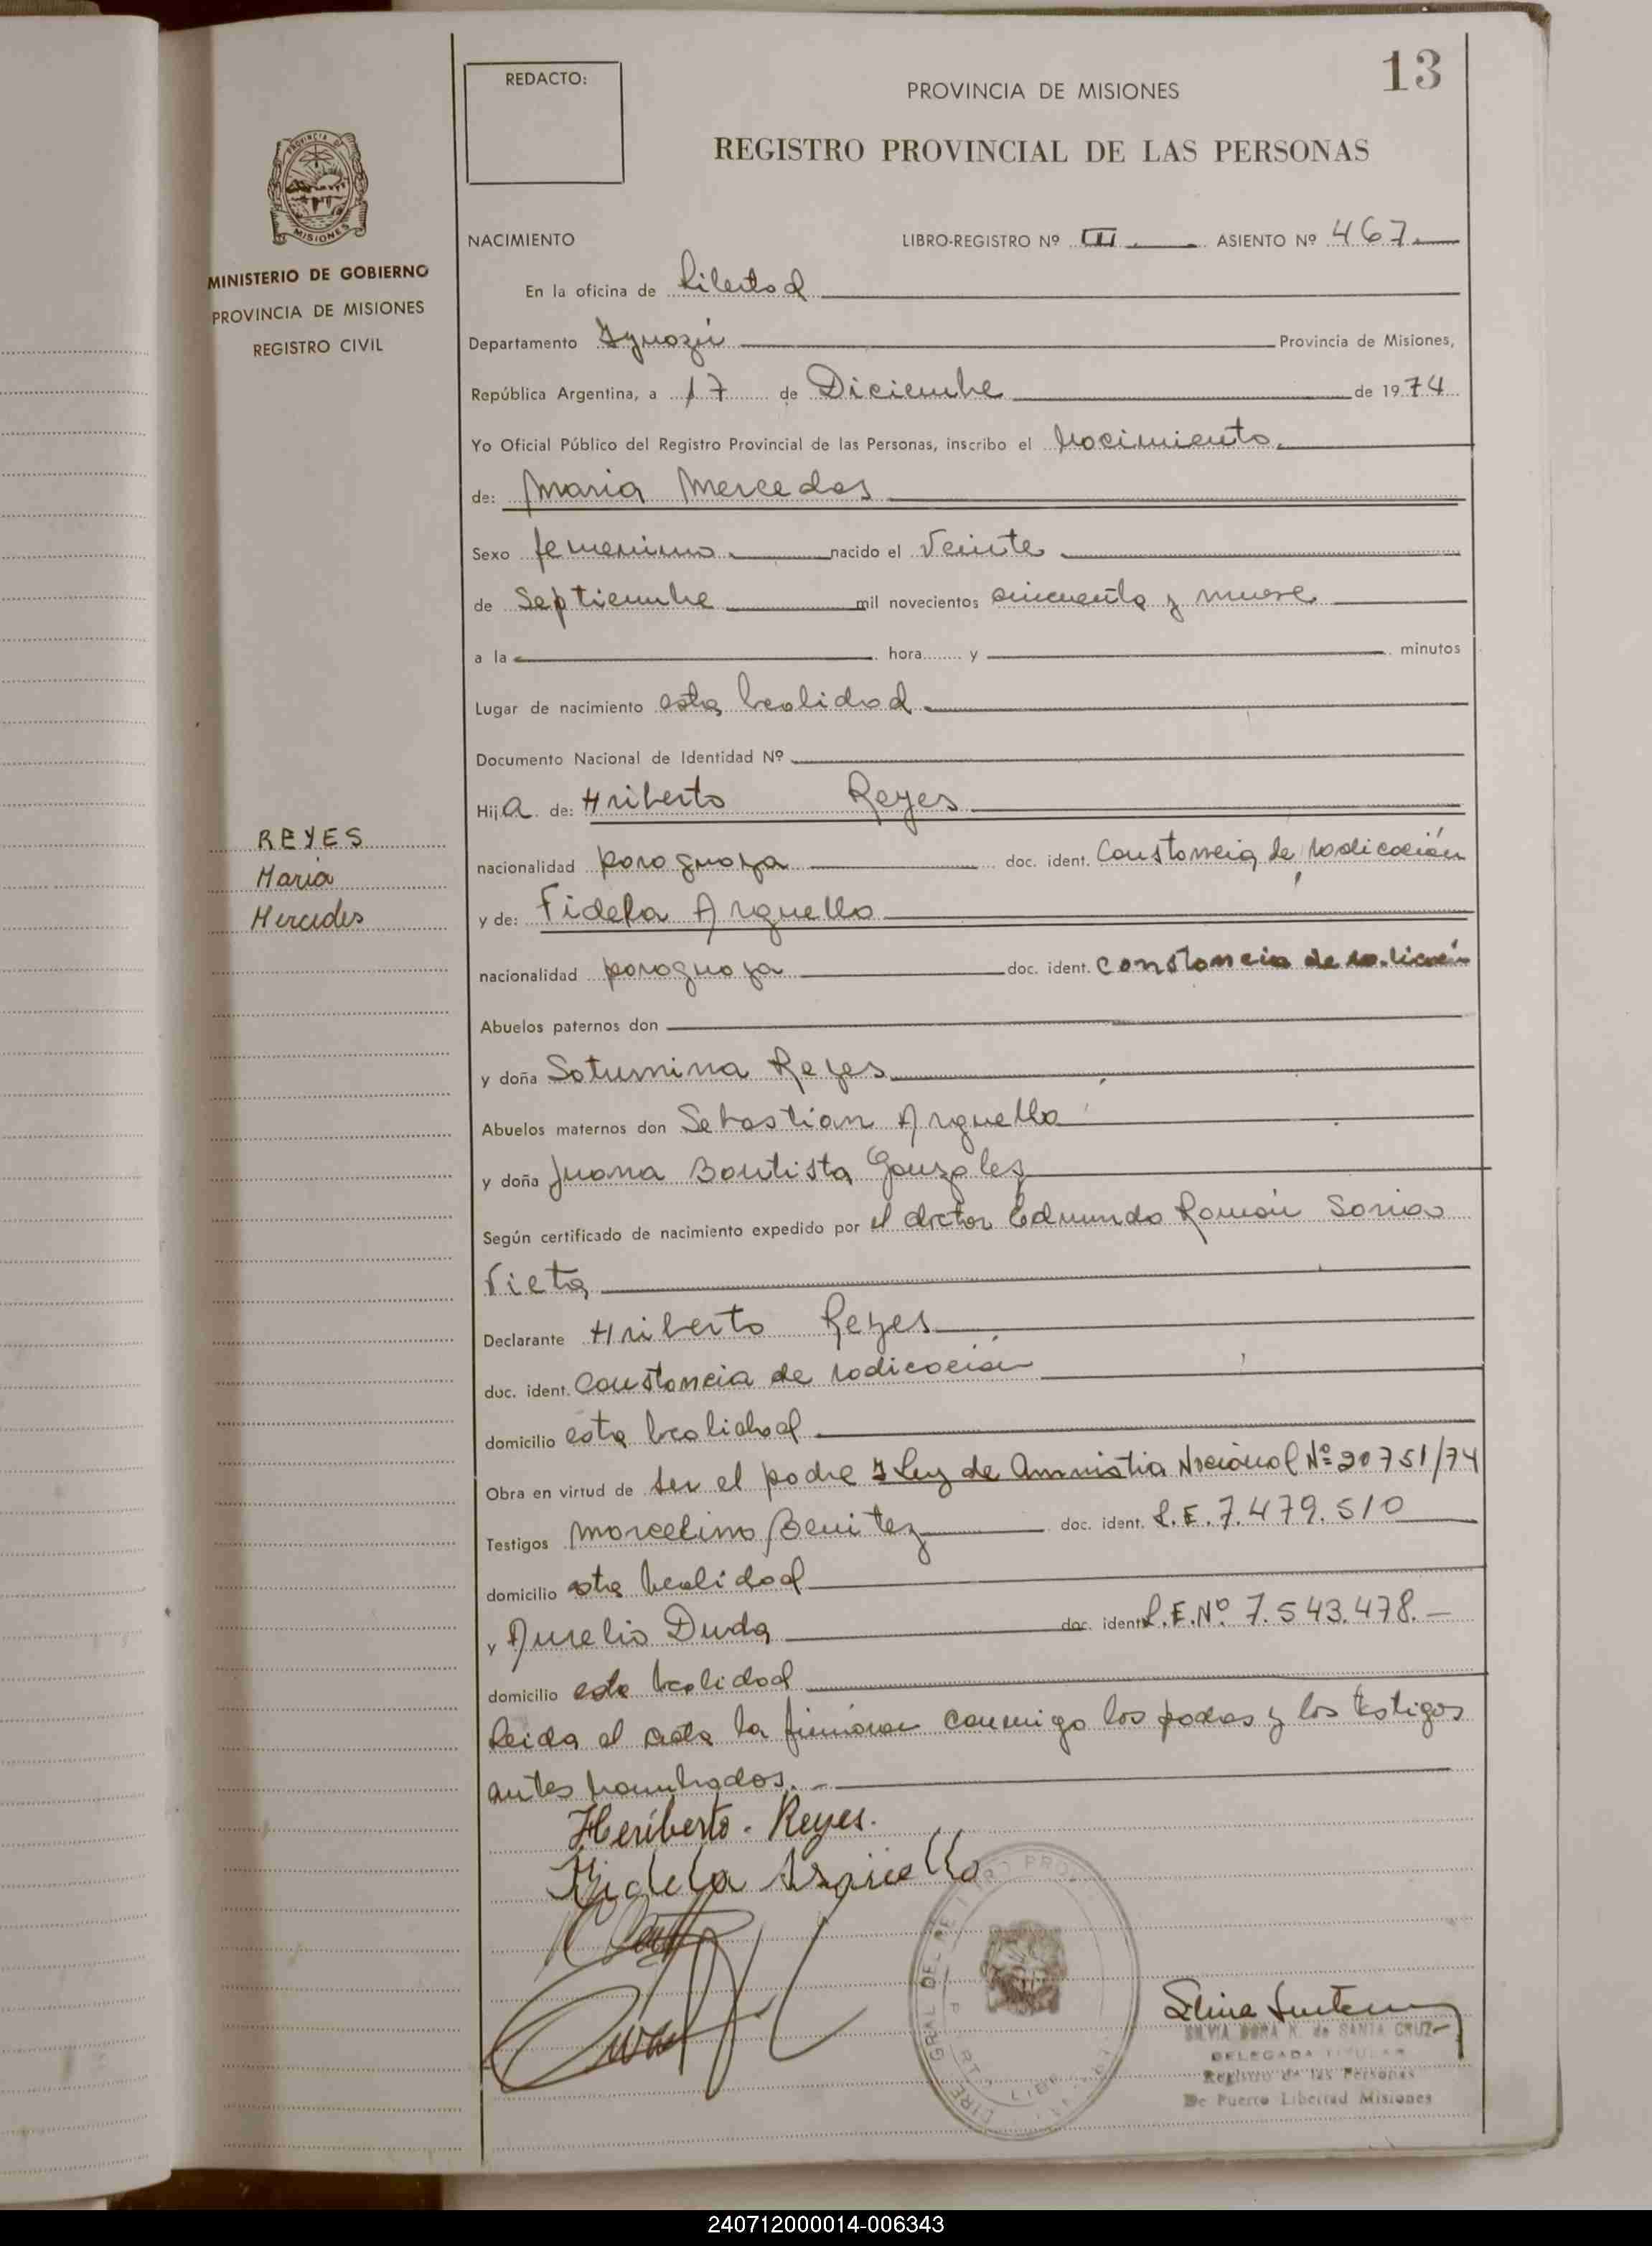 13
REDACTO:
PROVINCIA DE MISIONES
REGISTRO PROVINCIAL DE LAS PERSONAS
PROVINCIA DE
MISIONES
MINISTERIO DE GOBIERNO
PROVINCIA DE MISIONES
REGISTRO CIVIL
NACIMIENTO LIBRO-REGISTRO Nº III ASIENTO Nº 467
En la oficina de Libertad
Departamento Iguazú Provincia de Misiones,
República Argentina, a 17 de Diciembre de 1974
Yo Oficial Público del Registro Provincial de las Personas, inscribo el Nacimiento
de: Maria Mercedes
Sexo femenino nacido el Veinte
de Septiembre mil novecientos cincuenta y nueve
a la hora y minutos
Lugar de nacimiento esta localidad
Documento Nacional de Identidad Nº
Hija de: Hriberto Reyes
REYES
Maria
Mercedes
nacionalidad paraguaya doc. ident. Constancia de radicación
y de: Fidela Arguello
nacionalidad paraguaya doc. ident. Constancia de
Abuelos paternos don
y doña Saturnina Reyes
Abuelos maternos don Sebastian Arguello
y doña Juana Bautista Gonzales
Según certificado de nacimiento expedido por el doctor Edmundo Román Sorias
Vieta
Declarante Hriberto Reyes
doc. ident. Constancia de radicación
domicilio esta localidad
Obra en virtud de ser el padre y Ley de Amnistia Nacional Nº 20751/74
Testigos Marcelino Benitez doc. ident. L.E. 7.479.510
domicilio esta localidad
y Aurelio Duda doc. ident L.E.Nº 7.543.478.-
domicilio esta localidad
Leida el acta la firman conmigo los padres y los testigos
antes nombrados. -
Heriberto. Reyes.
Fidela Arguello
SILVIA DORA N. de SANTA CRUZ
DELEGADA TITULAR
Registro de las Personas
De Puerto Libertad Misiones
240712000014-006343